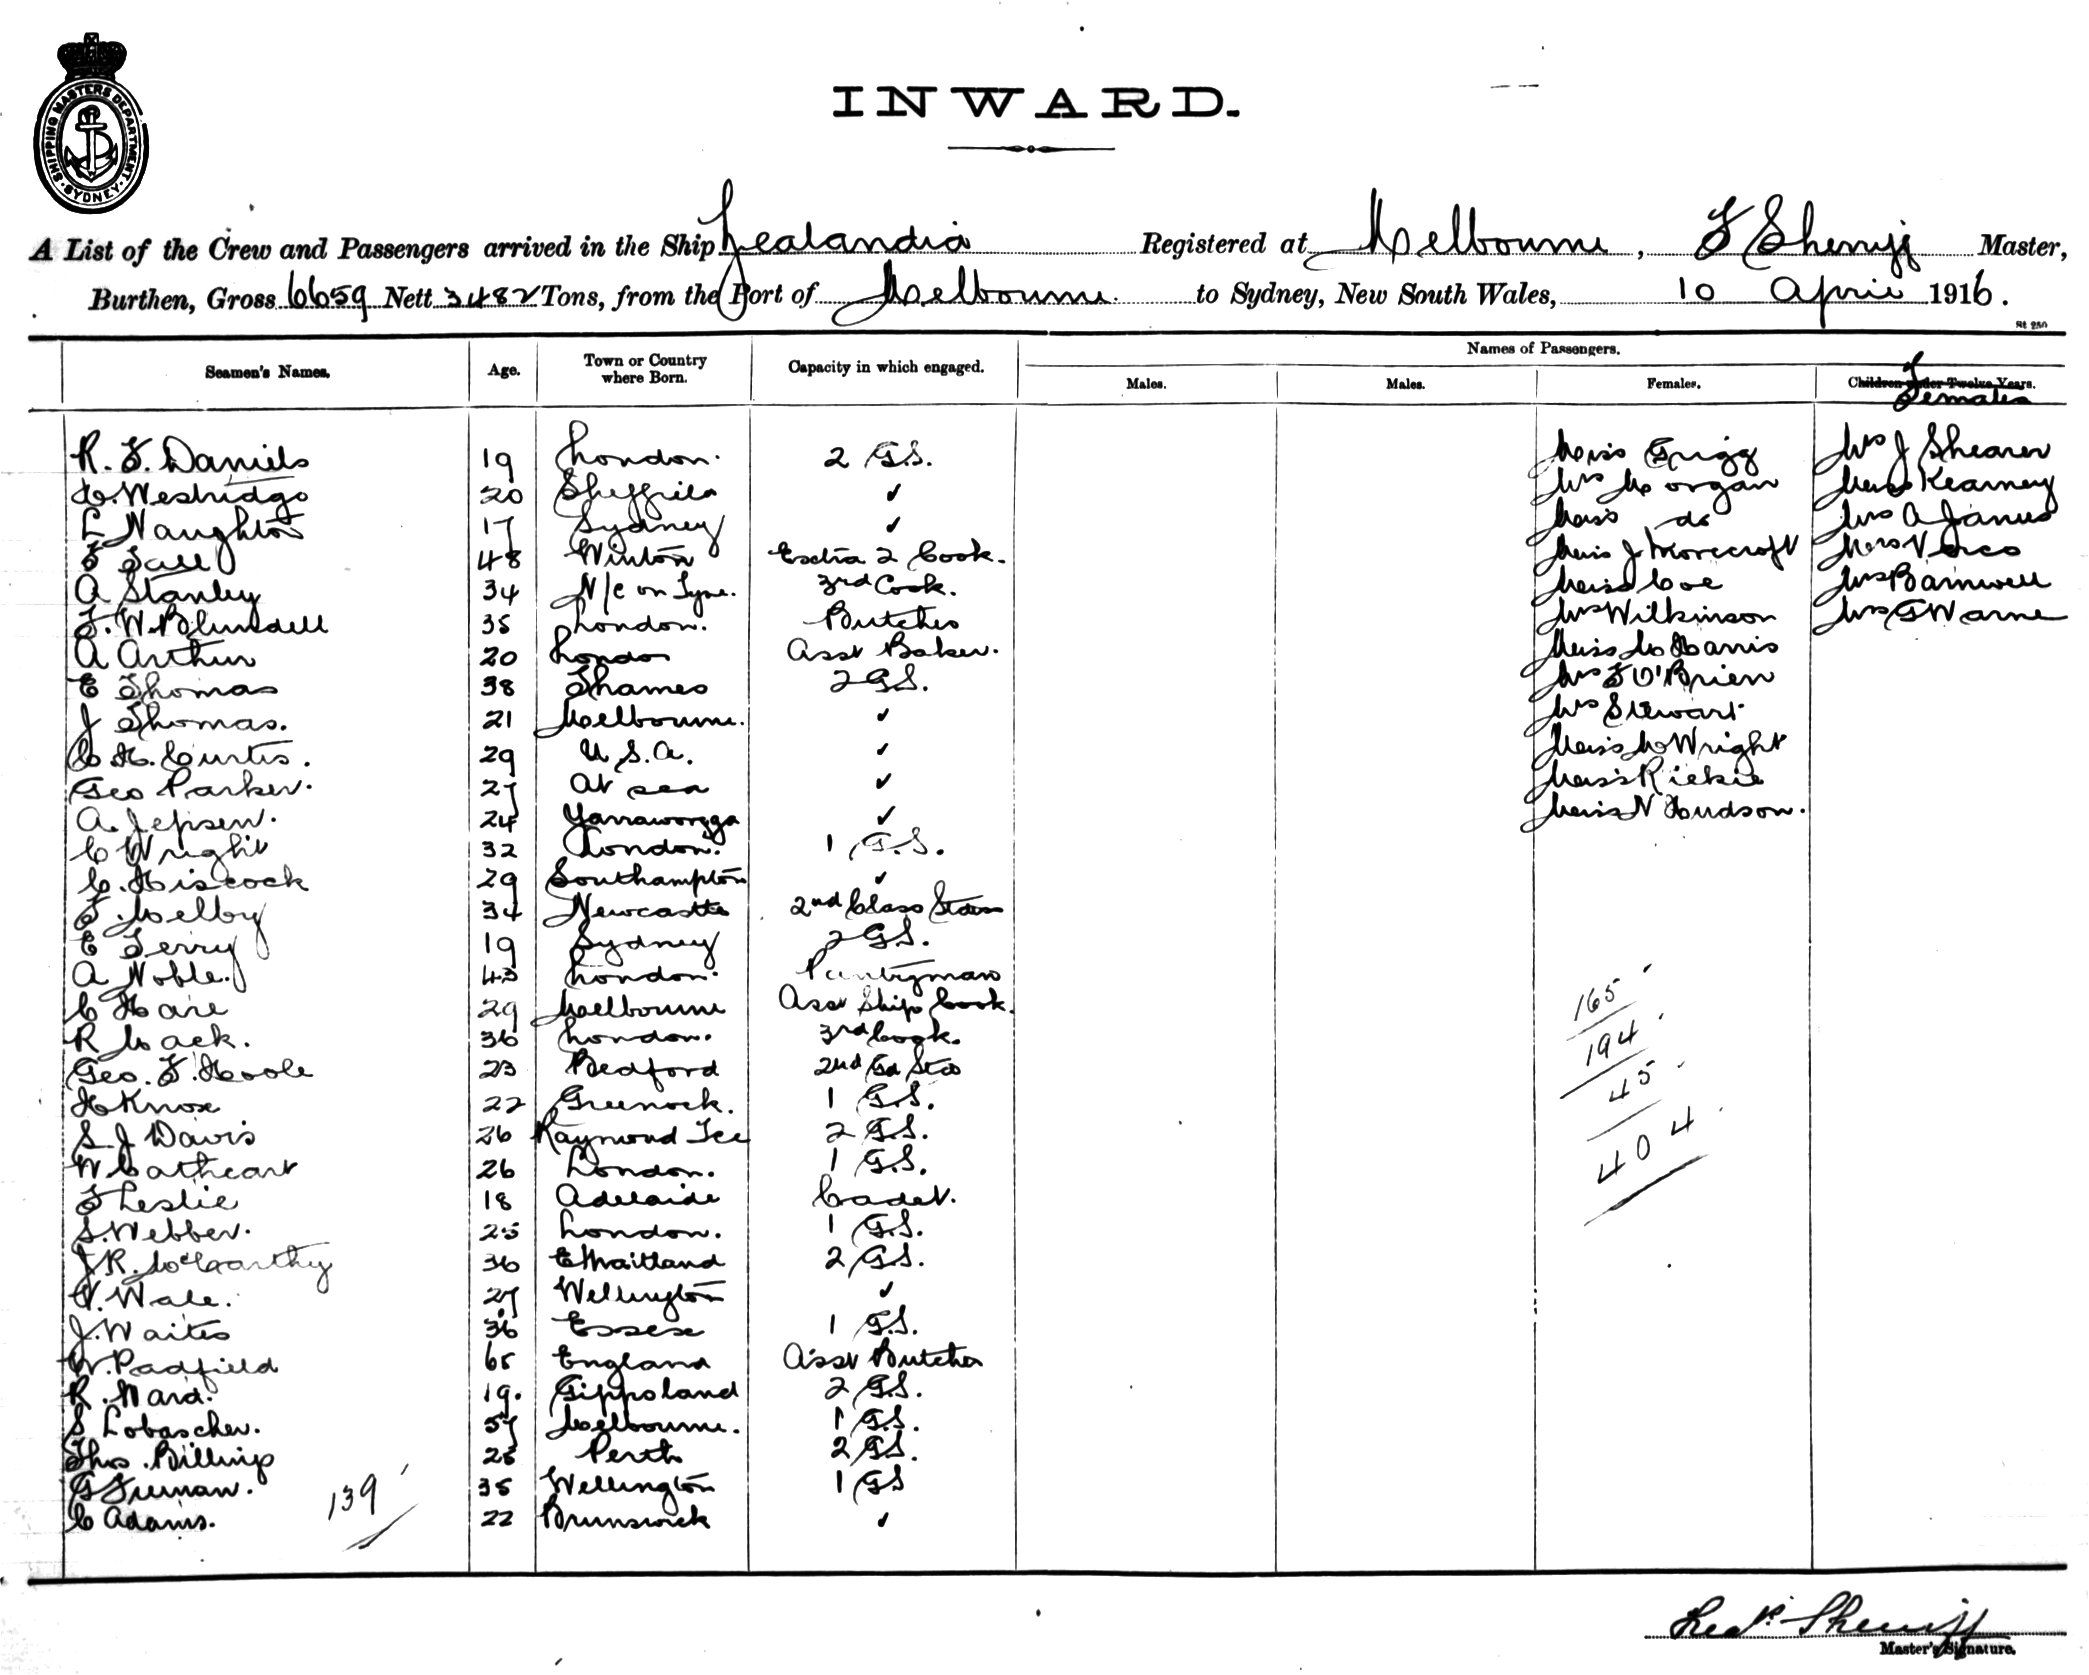 SHIPPING MASTERS DEPARTMENT. SYDNEY.
INWARD.
A List of the Crew and Passengers arrived in the Ship Zealandia Registered at Melbourne, F Sherriff Master,
Burthen, Gross 6659 Nett 3482 Tons, from the Port of Melbourne. to Sydney, New South Wales, 10 April 1916.
St 250
Names of Passengers.
Seamen's Names. Age. Town or Country where Born. Capacity in which engaged. Males. Males. Females. Children under Twelve Years. Females
R. F. Daniels 19 London. 2 G.S. Miss Grigg Mrs J Shearer
20 Sheffield ✓ Mrs Morgan Miss Kearney
L Naughton 17 Sydney ✓ Miss do Mrs A James
48 Winton Extra 2 Cook. Miss J Morecroft
A Stanley 34 N/c on Tyne. 3rd Cook. Miss Coe Mrs Barnwell
F. W. Blundell 35 London. Butcher Mrs Wilkinson Mrs G Warne
A Arthur 20 London Asst Baker. Miss M Harris
E Thomas 38 Thames 2 G.S. Mrs F O'Brien
J Thomas. 21 Melbourne. ✓ Mrs Stewart
C H. Curtis. 29 U.S.A. ✓ Miss M Wright
Geo Parker. 27 At sea ✓ Miss Rickie
A. Jepsen. 24 Yarrawonga ✓ Miss N Hudson.
C Wright 32 London. 1 G.S.
C. Hiscock 29 Southampton ✓
F. Melby 34 Newcastle 2nd Class Stwd
E Terry 19 Sydney 2 G.S.
A Noble. 43 London. Pantryman
C Hare 29 Melbourne Asst Ships Cook.
R Mack. 36 London. 3rd Cook.
Geo. F. Hoole 23 Bedford 2nd Gd Std
H Knox 22 Greenock. 1 G.S.
S. J Davis 26 Raymond Tce 2 G.S.
W Cathcart 26 London. 1 G.S.
F Leslie 18 Adelaide Cadet.
S. Webber. 25 London. 1 G.S.
J R. McCarthy 36 E Maitland 2 G.S.
V. Wale. 27 Wellington ✓
J. Waites 36 Essex 1 G.S.
W. Padfield 65 England Asst Butcher
R. Ward. 19. Gippsland 2 G.S.
S Lobascher. 57 Melbourne. 1 G.S.
Thos. Billings 28 Perth 2 G.S.
G Freeman. 35 Wellington 1 GS
C Adams. 22 Brunswick ✓
139
165
194
45
404
Master's Signature.